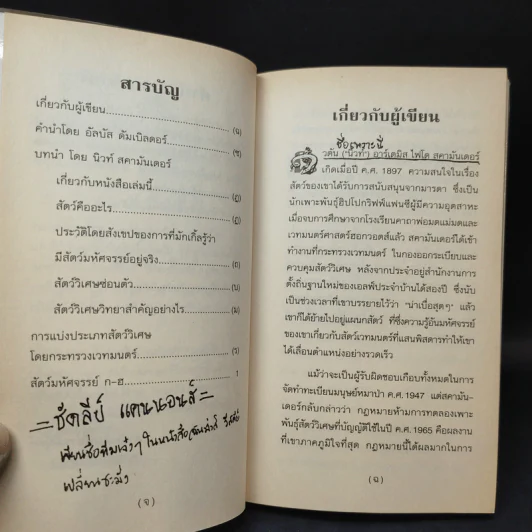 สารบัญ
เกี่ยวกับผู้เขียน (ฉ)
คำนำโดย อัลบัส ดัมเบิลดอร์ (ซ)
บทนำ โดย นิวท์ สคามันเดอร์
เกี่ยวกับหนังสือเล่มนี้ (ฎ)
สัตว์คืออะไร (ฏ)
ประวัติโดยสังเขปของการที่มักเกิ้ลรู้ว่า
มีสัตว์มหัศจรรย์อยู่จริง (ถ)
สัตว์วิเศษซ่อนตัว (น)
สัตว์วิเศษวิทยาสำคัญอย่างไร (ม)
การแบ่งประเภทสัตว์วิเศษ
โดยกระทรวงเวทมนตร์ (ร)
สัตว์มหัศจรรย์ ก-ฮ 1
=ชัดลีย์ แคนนอนส์=
(จ)
เกี่ยวกับผู้เขียน
ชื่อเพราะนี่
นิวตัน ("นิวท์") อาร์เตมิส ไฟโด สคามันเดอร์
เกิดเมื่อปี ค.ศ. 1897 ความสนใจในเรื่อง
สัตว์ของเขาได้รับการสนับสนุนจากมารดา ซึ่งเป็น
นักเพาะพันธุ์ฮิปโปกริฟฟ์แฟนซีผู้มีความอุตสาหะ
เมื่อจบการศึกษาจากโรงเรียนคาถาพ่อมดแม่มดและ
เวทมนตร์ศาสตร์ฮอกวอตส์แล้ว สคามันเดอร์ได้เข้า
ทำงานที่กระทรวงเวทมนตร์ ในกองออกระเบียบและ
ควบคุมสัตว์วิเศษ หลังจากประจำอยู่สำนักงานการ
ตั้งถิ่นฐานใหม่ของเอลฟ์ประจำบ้านได้สองปี ซึ่งนับ
เป็นช่วงเวลาที่เขาบรรยายไว้ว่า "น่าเบื่อสุดๆ" แล้ว
เขาก็ได้ย้ายไปอยู่แผนกสัตว์ ที่ซึ่งความรู้อันมหัศจรรย์
ของเขาเกี่ยวกับสัตว์เวทมนตร์ที่แสนพิสดารทำให้เขา
ได้เลื่อนตำแหน่งอย่างรวดเร็ว
แม้ว่าจะเป็นผู้รับผิดชอบเกือบทั้งหมดในการ
จัดทำทะเบียนมนุษย์หมาป่า ค.ศ. 1947 แต่สคามัน-
เดอร์กลับกล่าวว่า กฎหมายห้ามการทดลองเพาะ
พันธุ์สัตว์วิเศษที่บัญญัติใช้ในปี ค.ศ. 1965 คือผลงาน
ที่เขาภาคภูมิใจที่สุด กฎหมายนี้ได้ผลมากในการ
(ฉ)